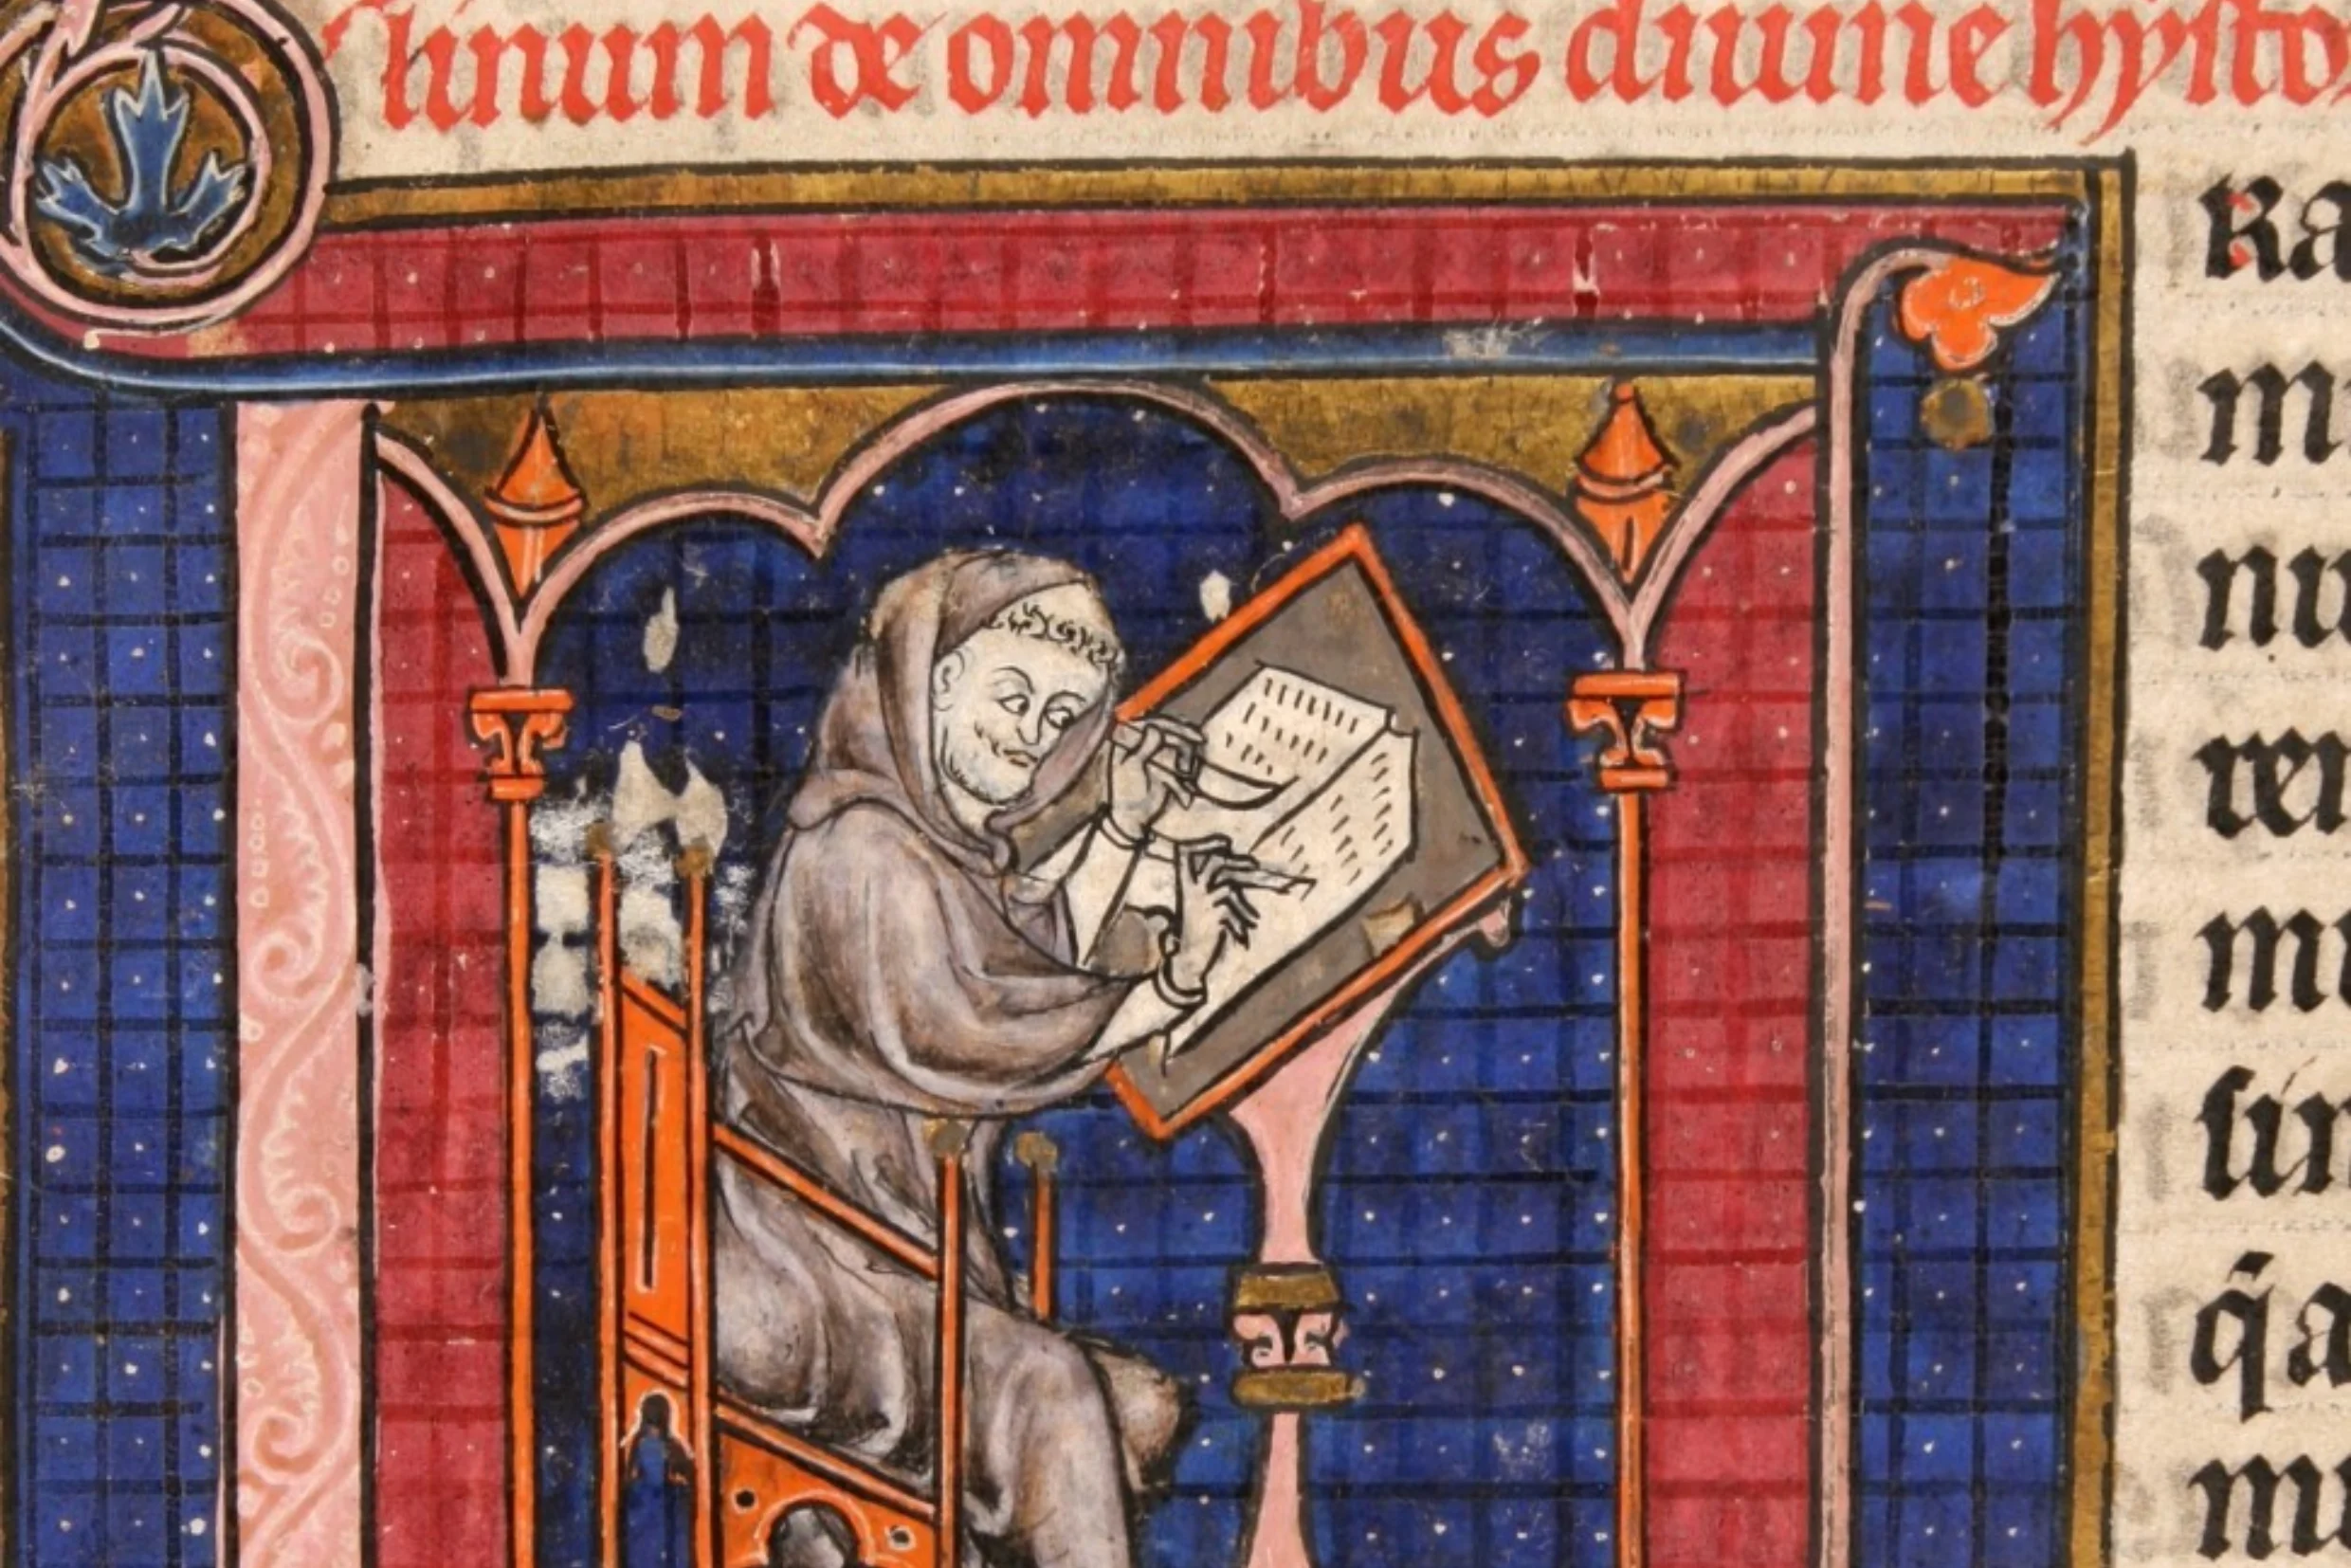 linum de omnibus diuine hysto
Ra
m
nu
rer
mi
sin
q̃a
mu